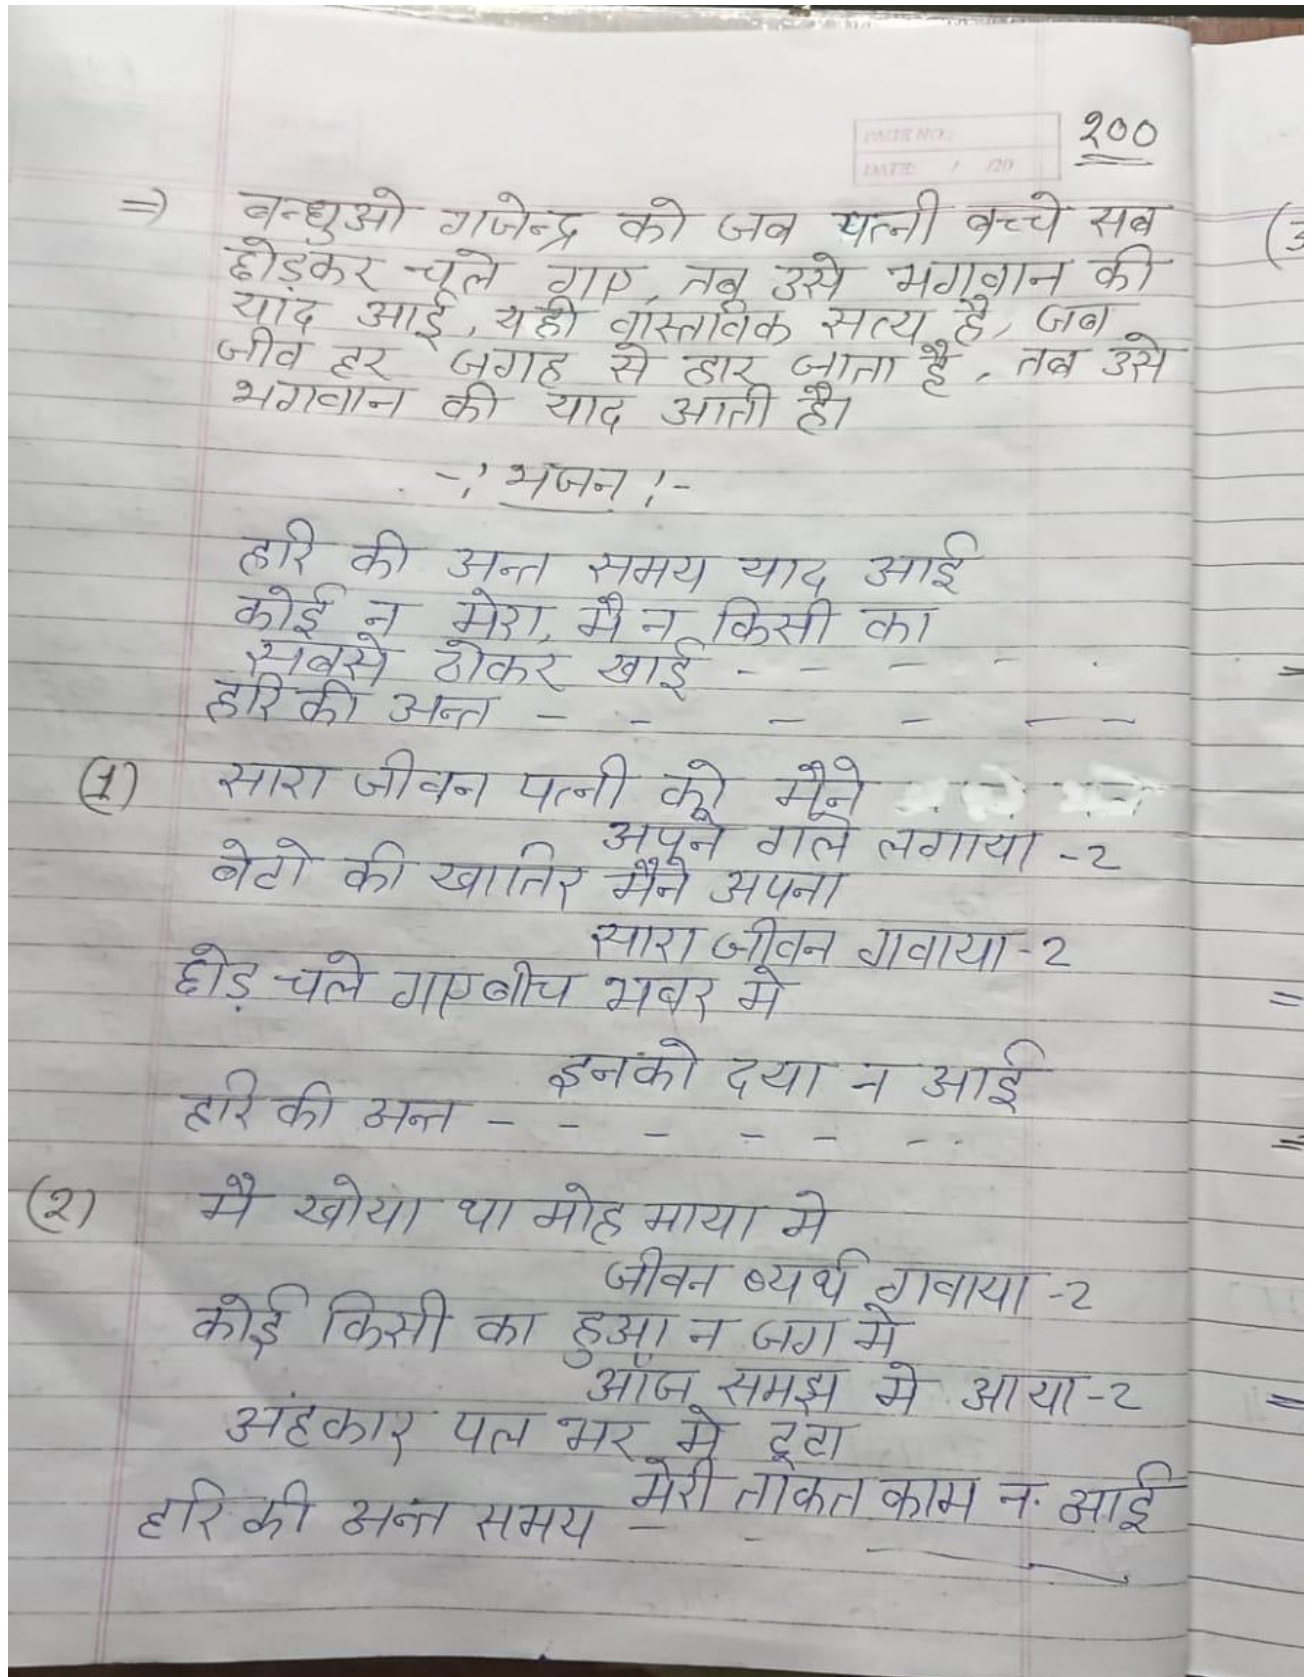 PAGE NO.:
DATE: / /20
२००
=> बन्धुओ गजेन्द्र को जब पत्नी बच्चे सब
छोड़कर चले गए, तब उसे भगवान की
याद आई, यही वास्तविक सत्य है, जब
जीव हर जगह से हार जाता है, तब उसे
भगवान की याद आती है।
-: भजन :-
हरि की अन्त समय याद आई
कोई न मेरा, मै न किसी का
सबसे ठोकर खाई - - - - .
हरि की अन्त - - - - - -
(1) सारा जीवन पत्नी को मैने
अपने गले लगाया -2
बेटो की खातिर मैने अपना
सारा जीवन गवाया -2
छोड़ चले गए बीच भवर मे
इनको दया न आई
हरि की अन्त - - - - - - .
(२) मै खोया था मोह माया मे
जीवन ब्यर्थ गवाया -2
कोई किसी का हुआ न जग मे
आज समझ मे आया -2
अहंकार पल भर मे टूटा
मेरी ताकत काम न आई
हरि की अन्त समय - -